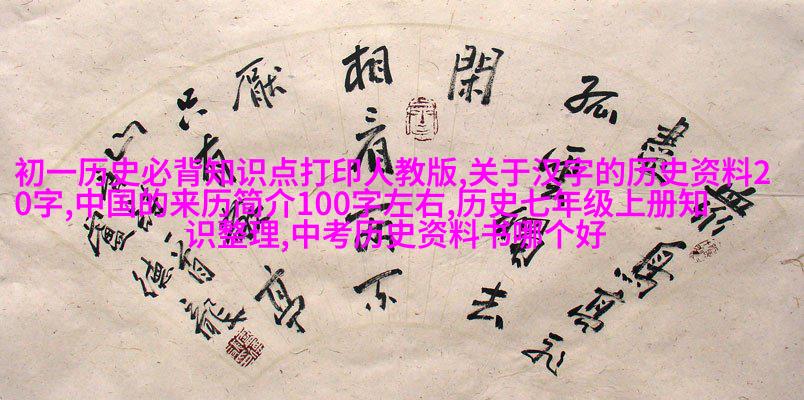 初一历史必背知识点打印人教版,关于汉字的历史资料2
0字,中国的来历简介100字左右,历史七年级上册知
识整理,中考历史资料书哪个好
孤
去
閑
相看不
厭
只有
亭
山